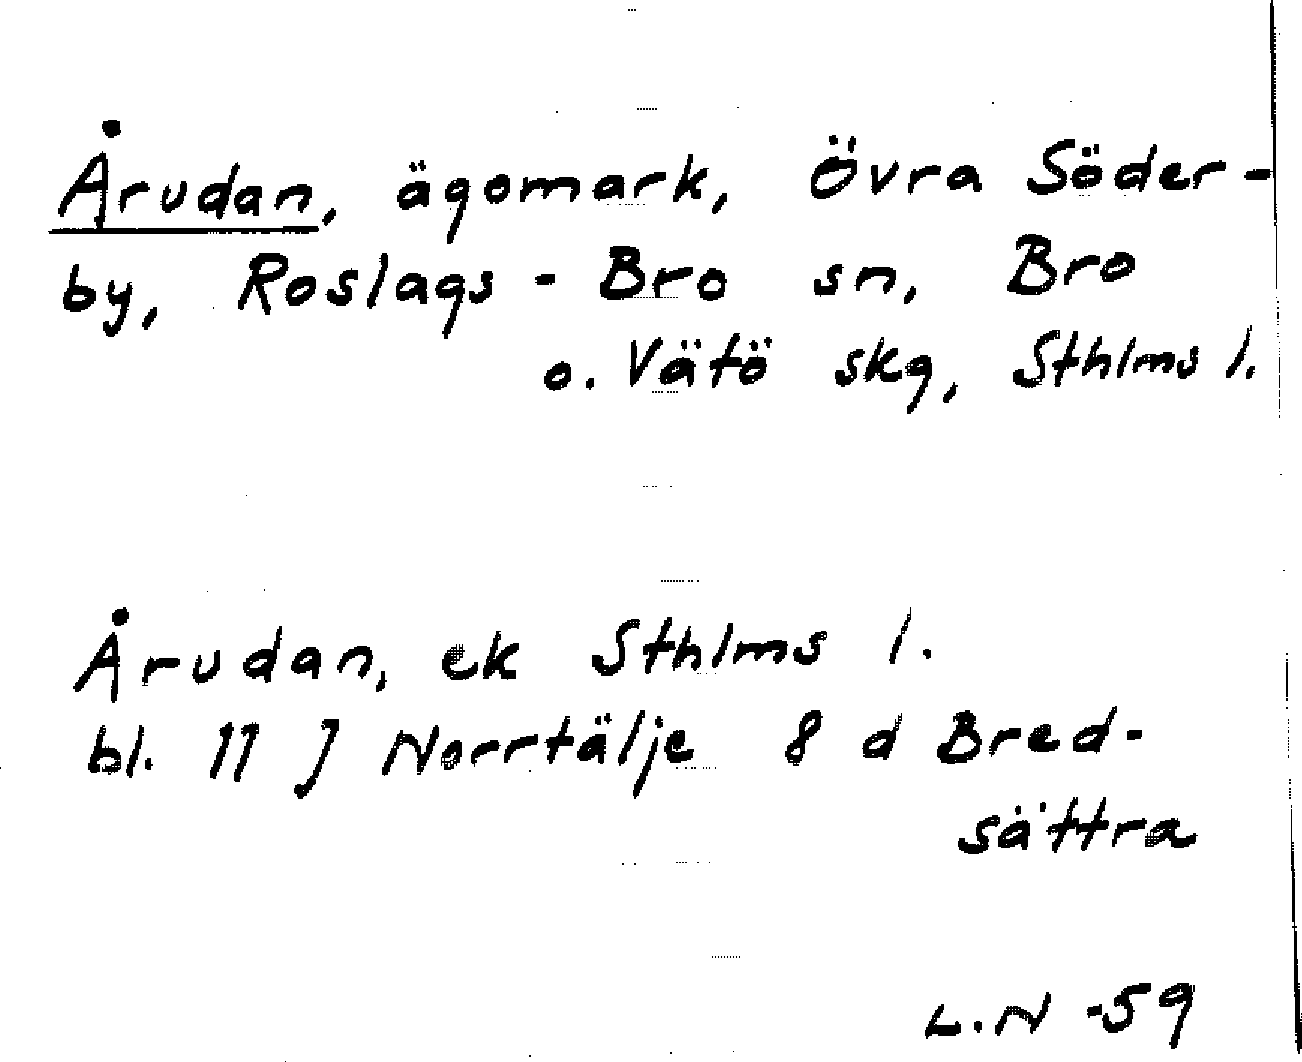 Årudan, ägomark, Övra Söder-
by, Roslags-Bro sn, Bro
o. Vätö skg, Sthlms l.
Årudan, ek Sthlms l.
bl. 11 J Norrtälje 8 d Bred-
sättra
L.N -59